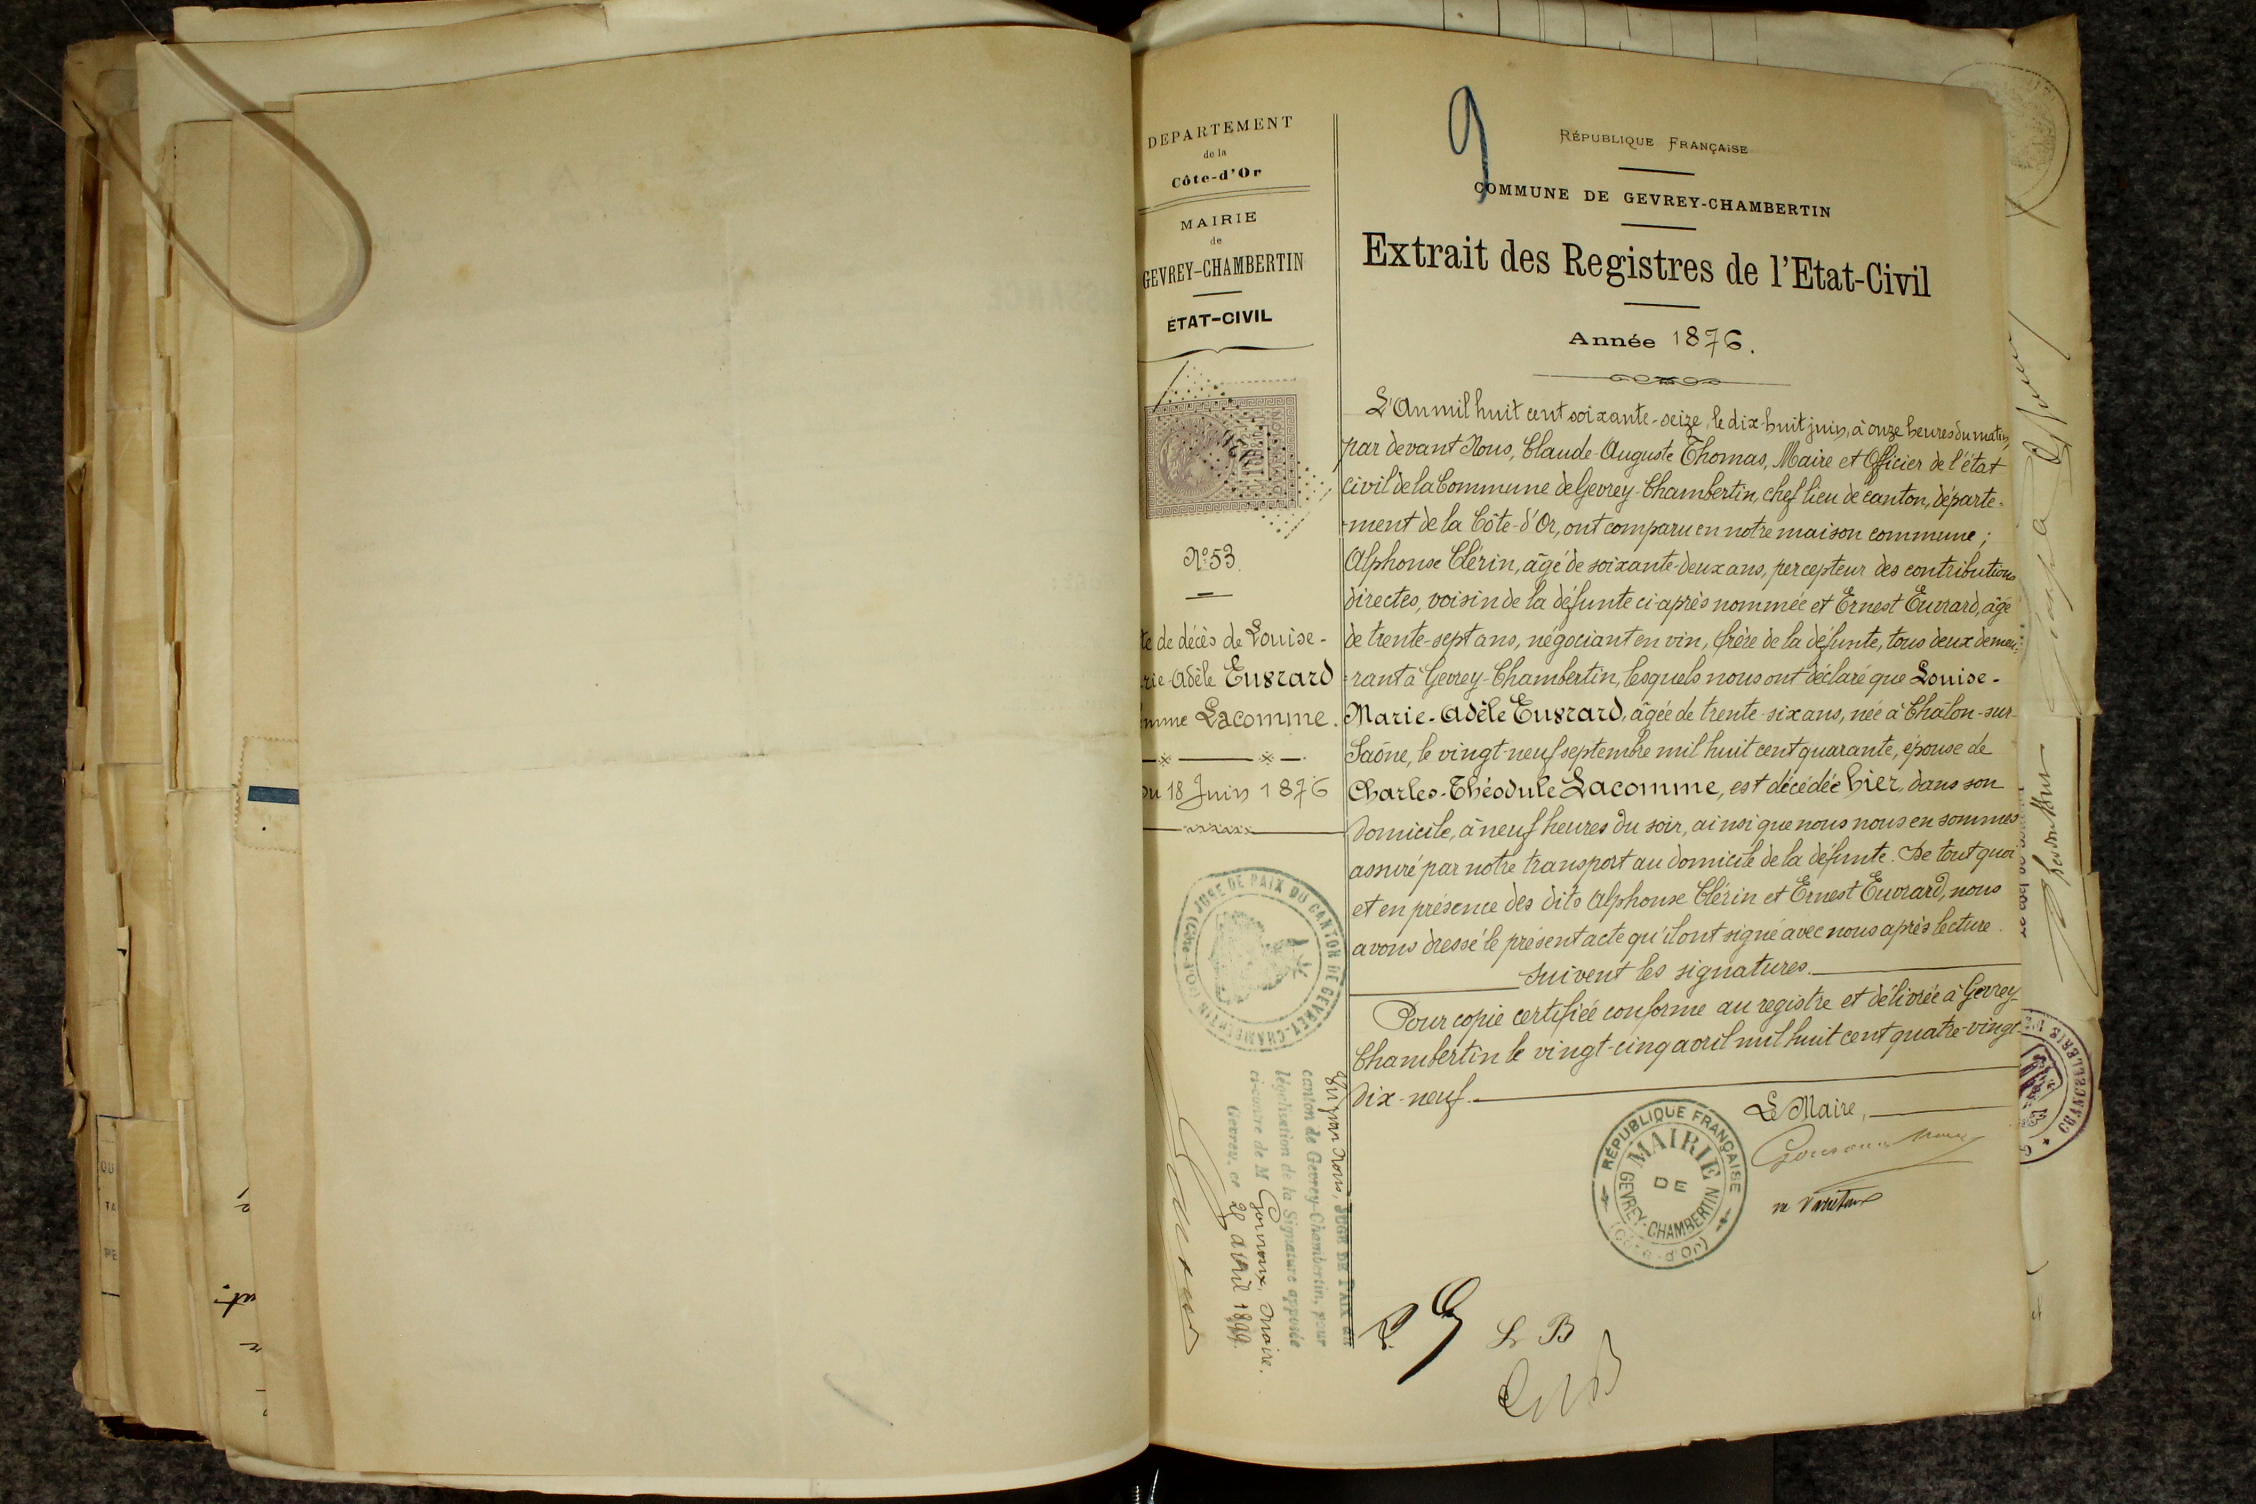 DEPARTEMENT
de la
Côte-d'Or
MAIRIE
de
GEVREY-CHAMBERTIN
ÉTAT-CIVIL
N° 53.
te de décès de Louise-
rie-Adèle Euvrard
mme Lacomme.
du 18 Juin 1876
JUGE DE PAIX DU CANTON DE GEVREY-CHAMBERTIN (CÔTE-D'OR)
Vu par Nous, JUGE DE PAIX du
canton de Gevrey-Chambertin, pour
légalisation de la Signature apposée
ci-contre de M Gournaux, Maire.
Gevrey, ce 28 avril 1899.
9
RÉPUBLIQUE FRANÇAISE
COMMUNE DE GEVREY-CHAMBERTIN
Extrait des Registres de l'Etat-Civil
Année 1876.
L'An mil huit cent soixante-seize, le dix-huit juin, à onze heures du matin,
par devant Nous, Claude-Auguste Thomas, Maire et Officier de l'état
civil de la Commune de Gevrey-Chambertin, chef lieu de canton, départe-
-ment de la Côte-d'Or, ont comparu en notre maison commune ;
Alphonse Clérin, âgé de soixante-deux ans, percepteur des contributions
directes, voisin de la défunte ci-après nommée et Ernest Euvrard, âgé
de trente-sept ans, négociant en vin, frère de la défunte, tous deux demeu-
-rant à Gevrey-Chambertin, lesquels nous ont déclaré que Louise-
Marie-Adèle Euvrard, âgée de trente-six ans, née à Châlon-sur-
Saône, le vingt-neuf septembre mil huit cent quarante, épouse de
Charles-Théodule Lacomme, est décédée hier, dans son
domicile, à neuf heures du soir, ainsi que nous nous en sommes
assuré par notre transport au domicile de la défunte. De tout quoi
et en présence des dits Alphonse Clérin et Ernest Euvrard, nous
avons dressé le présent acte qu'ils ont signé avec nous après lecture.
Suivent les signatures.
Pour copie certifiée conforme au registre et délivrée à Gevrey-
Chambertin le vingt-cinq avril mil huit cent quatre-vingt
dix-neuf.
Le Maire,
RÉPUBLIQUE FRANÇAISE
MAIRIE
DE
GEVREY-CHAMBERTIN
(Côte-d'Or)
L B
CHANCELLERIE